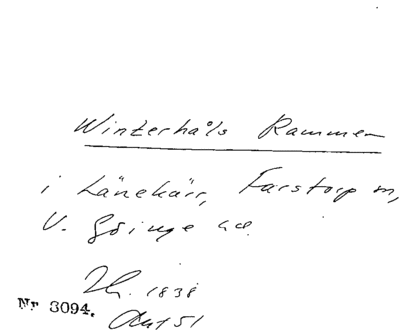 Winterhåls Rammen
i Länekärr, Farstorp m,
V. Göinge hd.
1838
Nr 3094.
Aut 51